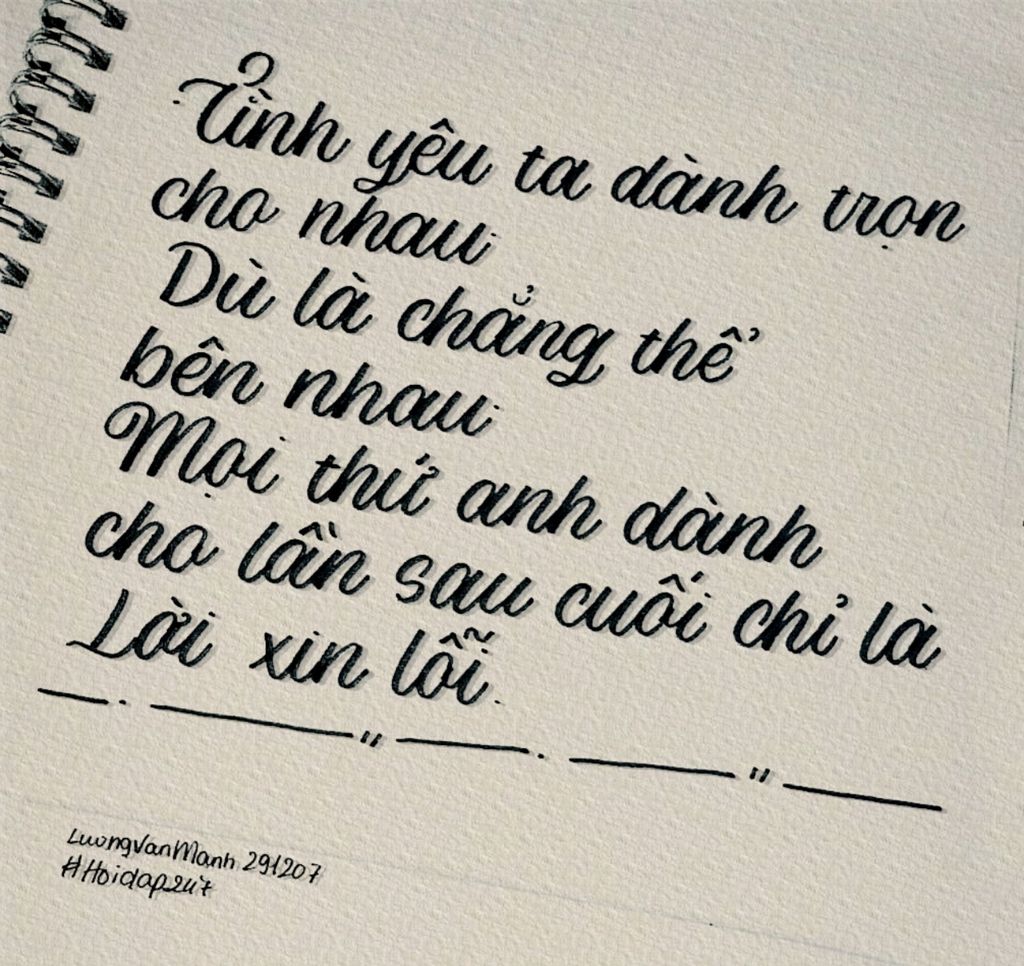 Tình yêu ta dành trọn
cho nhau
Dù là chẳng thể
bên nhau
Mọi thứ anh dành
cho lần sau cuối chỉ là
Lời xin lỗi.
LuongVanManh 291207
#Hoidap247